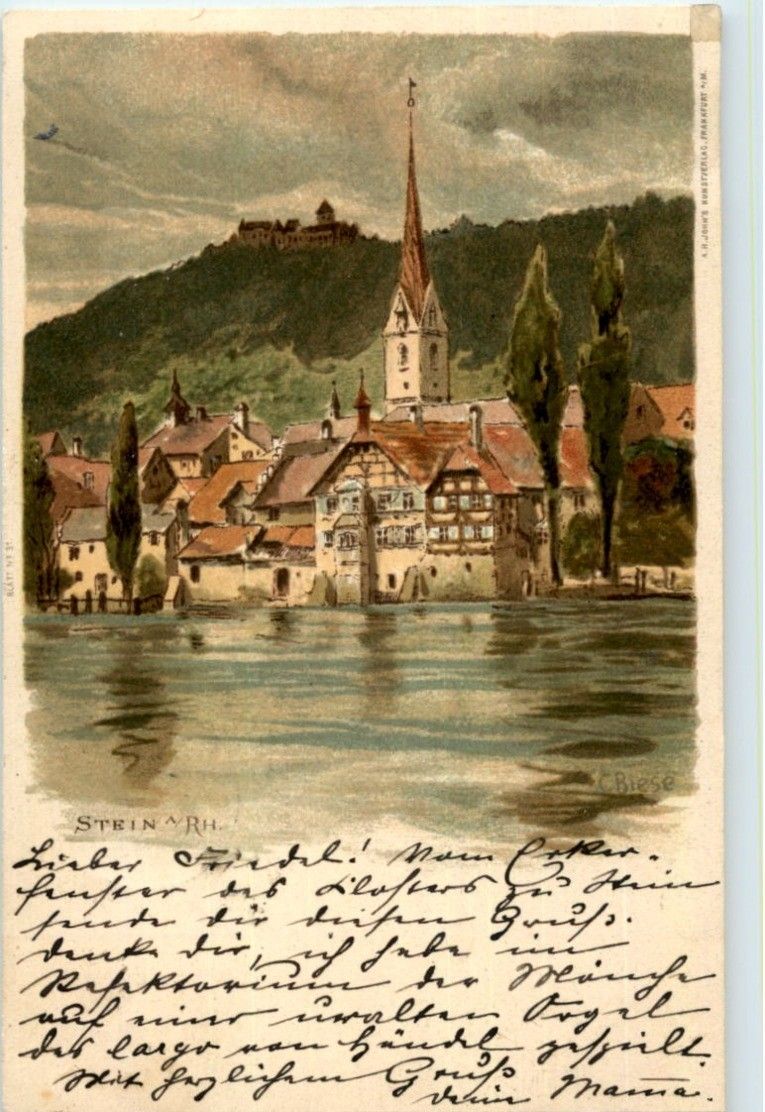 A.H. JOHN'S KUNSTVERLAG, FRANKFURT A/M.
BLATT No 31
C. Biese
STEIN A/RH.
Lieber Friedel! Vom Erker-
fenster des Klosters zu Stein
sende dir diesen Gruß.
denke dir, ich habe im
Refektorium der Mönche
auf einer uralten Orgel
das largo von Händel gespielt.
Mit herzlichem Gruß
deine Mama.